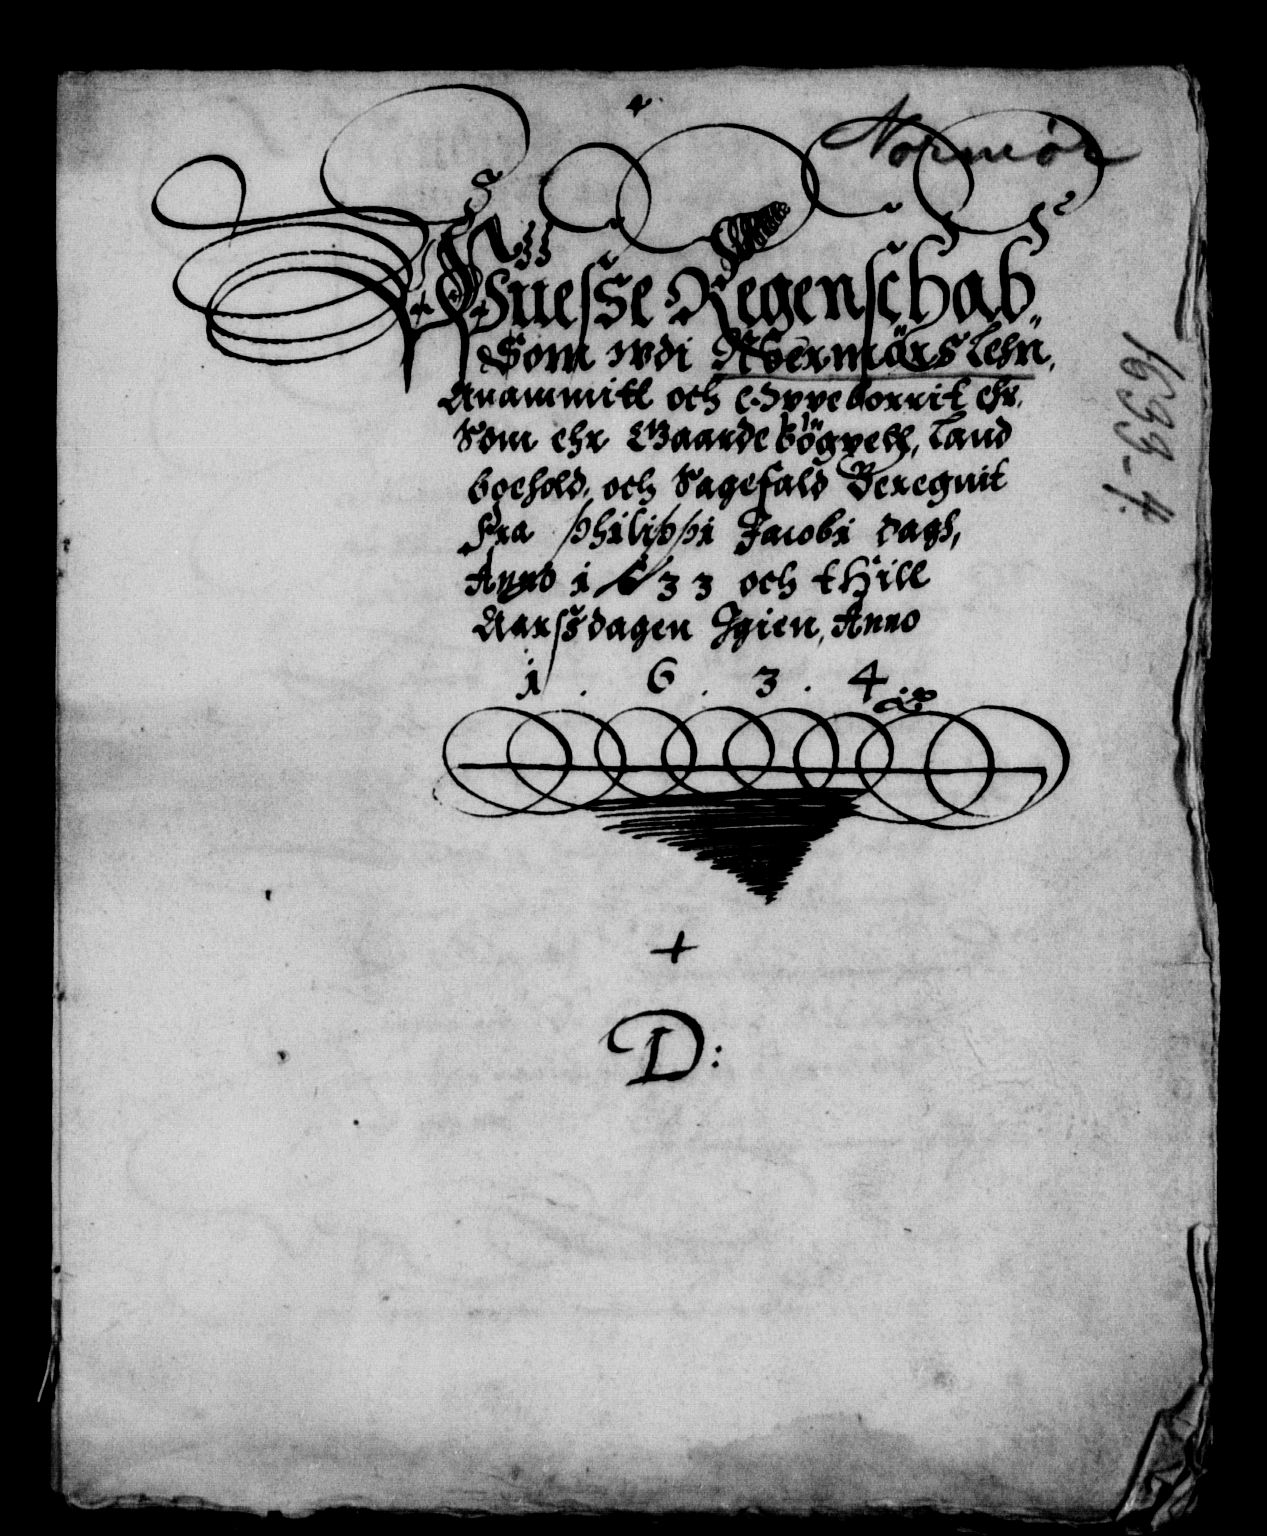 Normør
Wuesse Regenschab
Som udi Nbermörs Lehn,
Anammitt och Oppeborrit ehr,
Som ehr Gaardebögsell, Land
boehold, och Sagefald Beregnit
Fra Philippi Jacobi dags,
Anno 1633 och thill
Aarssdagen Igien, Anno
1 . 6 . 3 . 4
D:
1633-4.